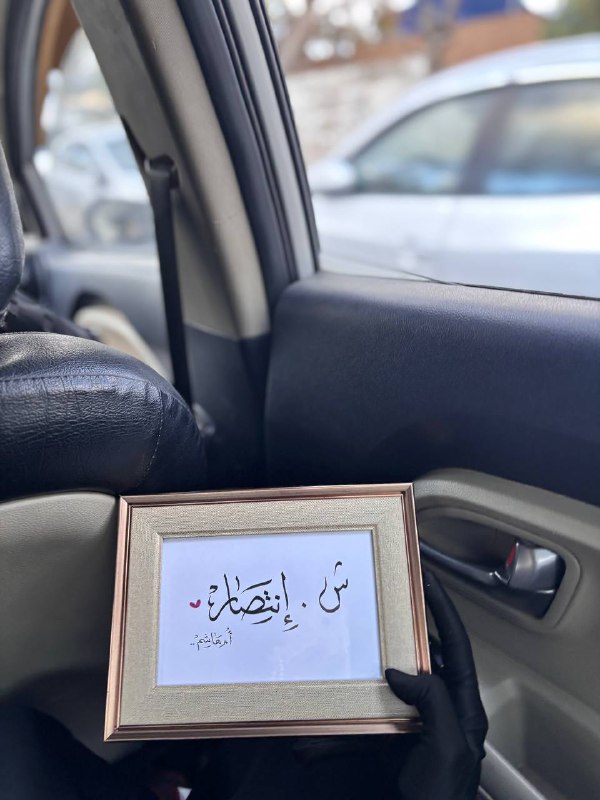 ش . إنتصار
أم هاشم..